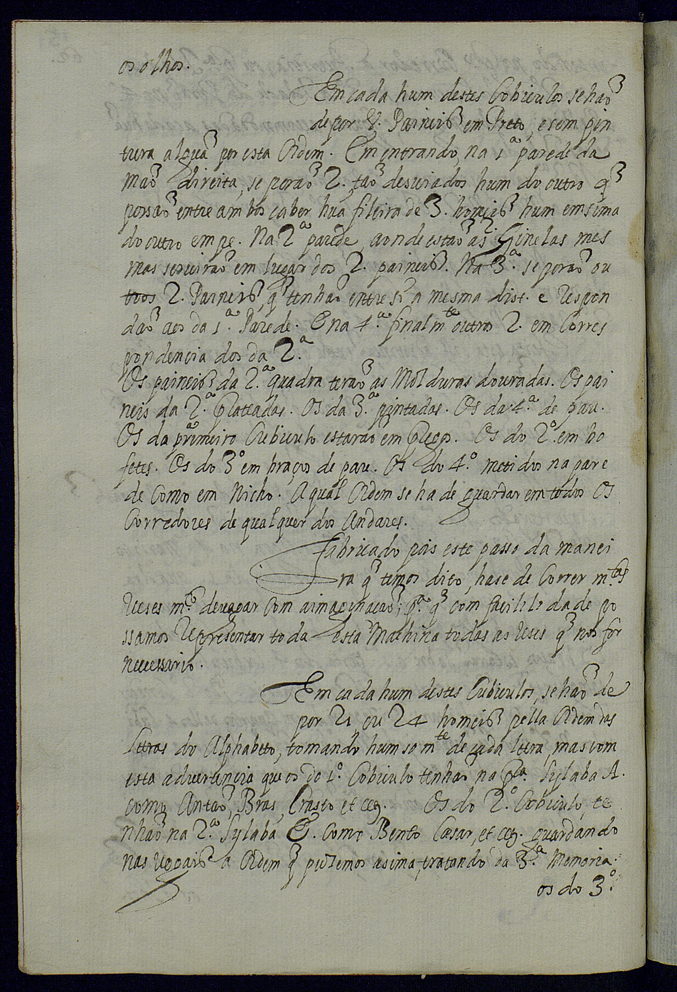 os olhos.
Em cada hum destes Cobiculos se haõ
de por 8. Paineis em Preto, e sem pin
tura alguã por esta Ordem. Em entrando, na 1ª parede da
maõ direita, se poraõ 2. taõ desviados hum do outro q̃
possaõ entre ambos caber huã fileira de 3. homeis hum em sima
do outro em pe. Na 2ª parede aonde estaõ as Ginelas mes
mas serviraõ em lugar dos 2. paineis. Na 3ª. se poraõ ou
tros 2. Paineis, q̃ tenhaõ entre si a mesma dist. e respon
daõ aos da 1ª. Parede. E na 4ª finalmte outros 2. em Corres
pondencia dos da 2ª
Os paineis da 2ª quadra teraõ as Molduras douradas. Os pai
neis da 2ª. Plateadas. Os da 3ª. pintadas. Os da 4ª. de pau.
Os da primeiro Cubiculo estaraõ em Pregos. Os do 2º. em bo
fetes. Os do 3º em braços de pau. Os do 4º. metidos na pare
de Como em Nicho. A qual Ordem se ha de guardar em todos Os
Corredores de qualquer dos Andares.
Fabricado pois este passo da manei
ra q̃ temos dito, hase de Correr mtas
veses mto devagar com a imaginaçaõ; pª q̃ com facilidade po
ssamos Representar toda esta Machina todas as veses q̃ nos for
necessario.
Em cada hum destes Cubiculos, se haõ de
por 21 ou 24 homeis pella Ordem das
Letras do Alphabeto, tomando hum somte de cada letra, mas com
esta advertencia que os do 1º. Cobiculo tenhaõ na 1ª Sylaba A.
como Antaõ, Bras, Crasto et cª. Os do 2º. Cobiculo, te
nhaõ na 2ª Sylaba E. Como Bento Cæsar, et cª. guardando
nas vogais a Ordem q̃ pozemos asima, tratando da 3ª. Memoria.
os do 3º.